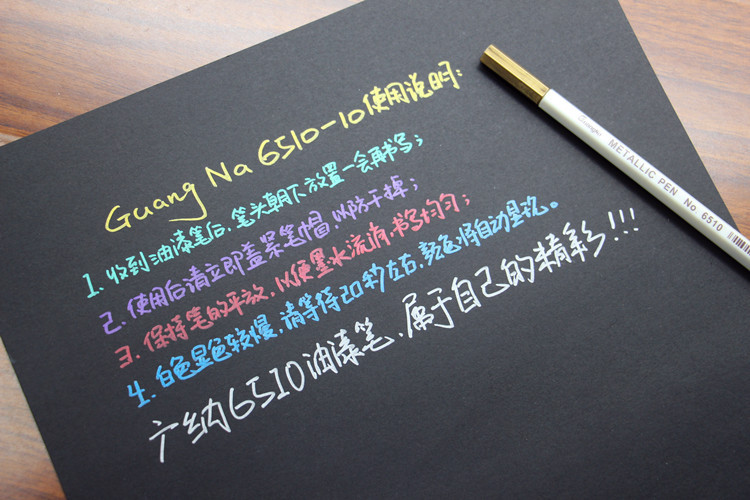 Guang Na 6510-10使用说明:
1. 收到油漆笔后,笔头朝下放置一会再书写;
2. 使用后请立即盖紧笔帽,以防干掉;
3. 保持笔的平放,以便墨水流畅,书写均匀;
4. 白色显色较慢,请等待20秒左右,颜色将自动显现。
广纳6510油漆笔,属于自己的精彩!!!
METALLIC PEN No 6510